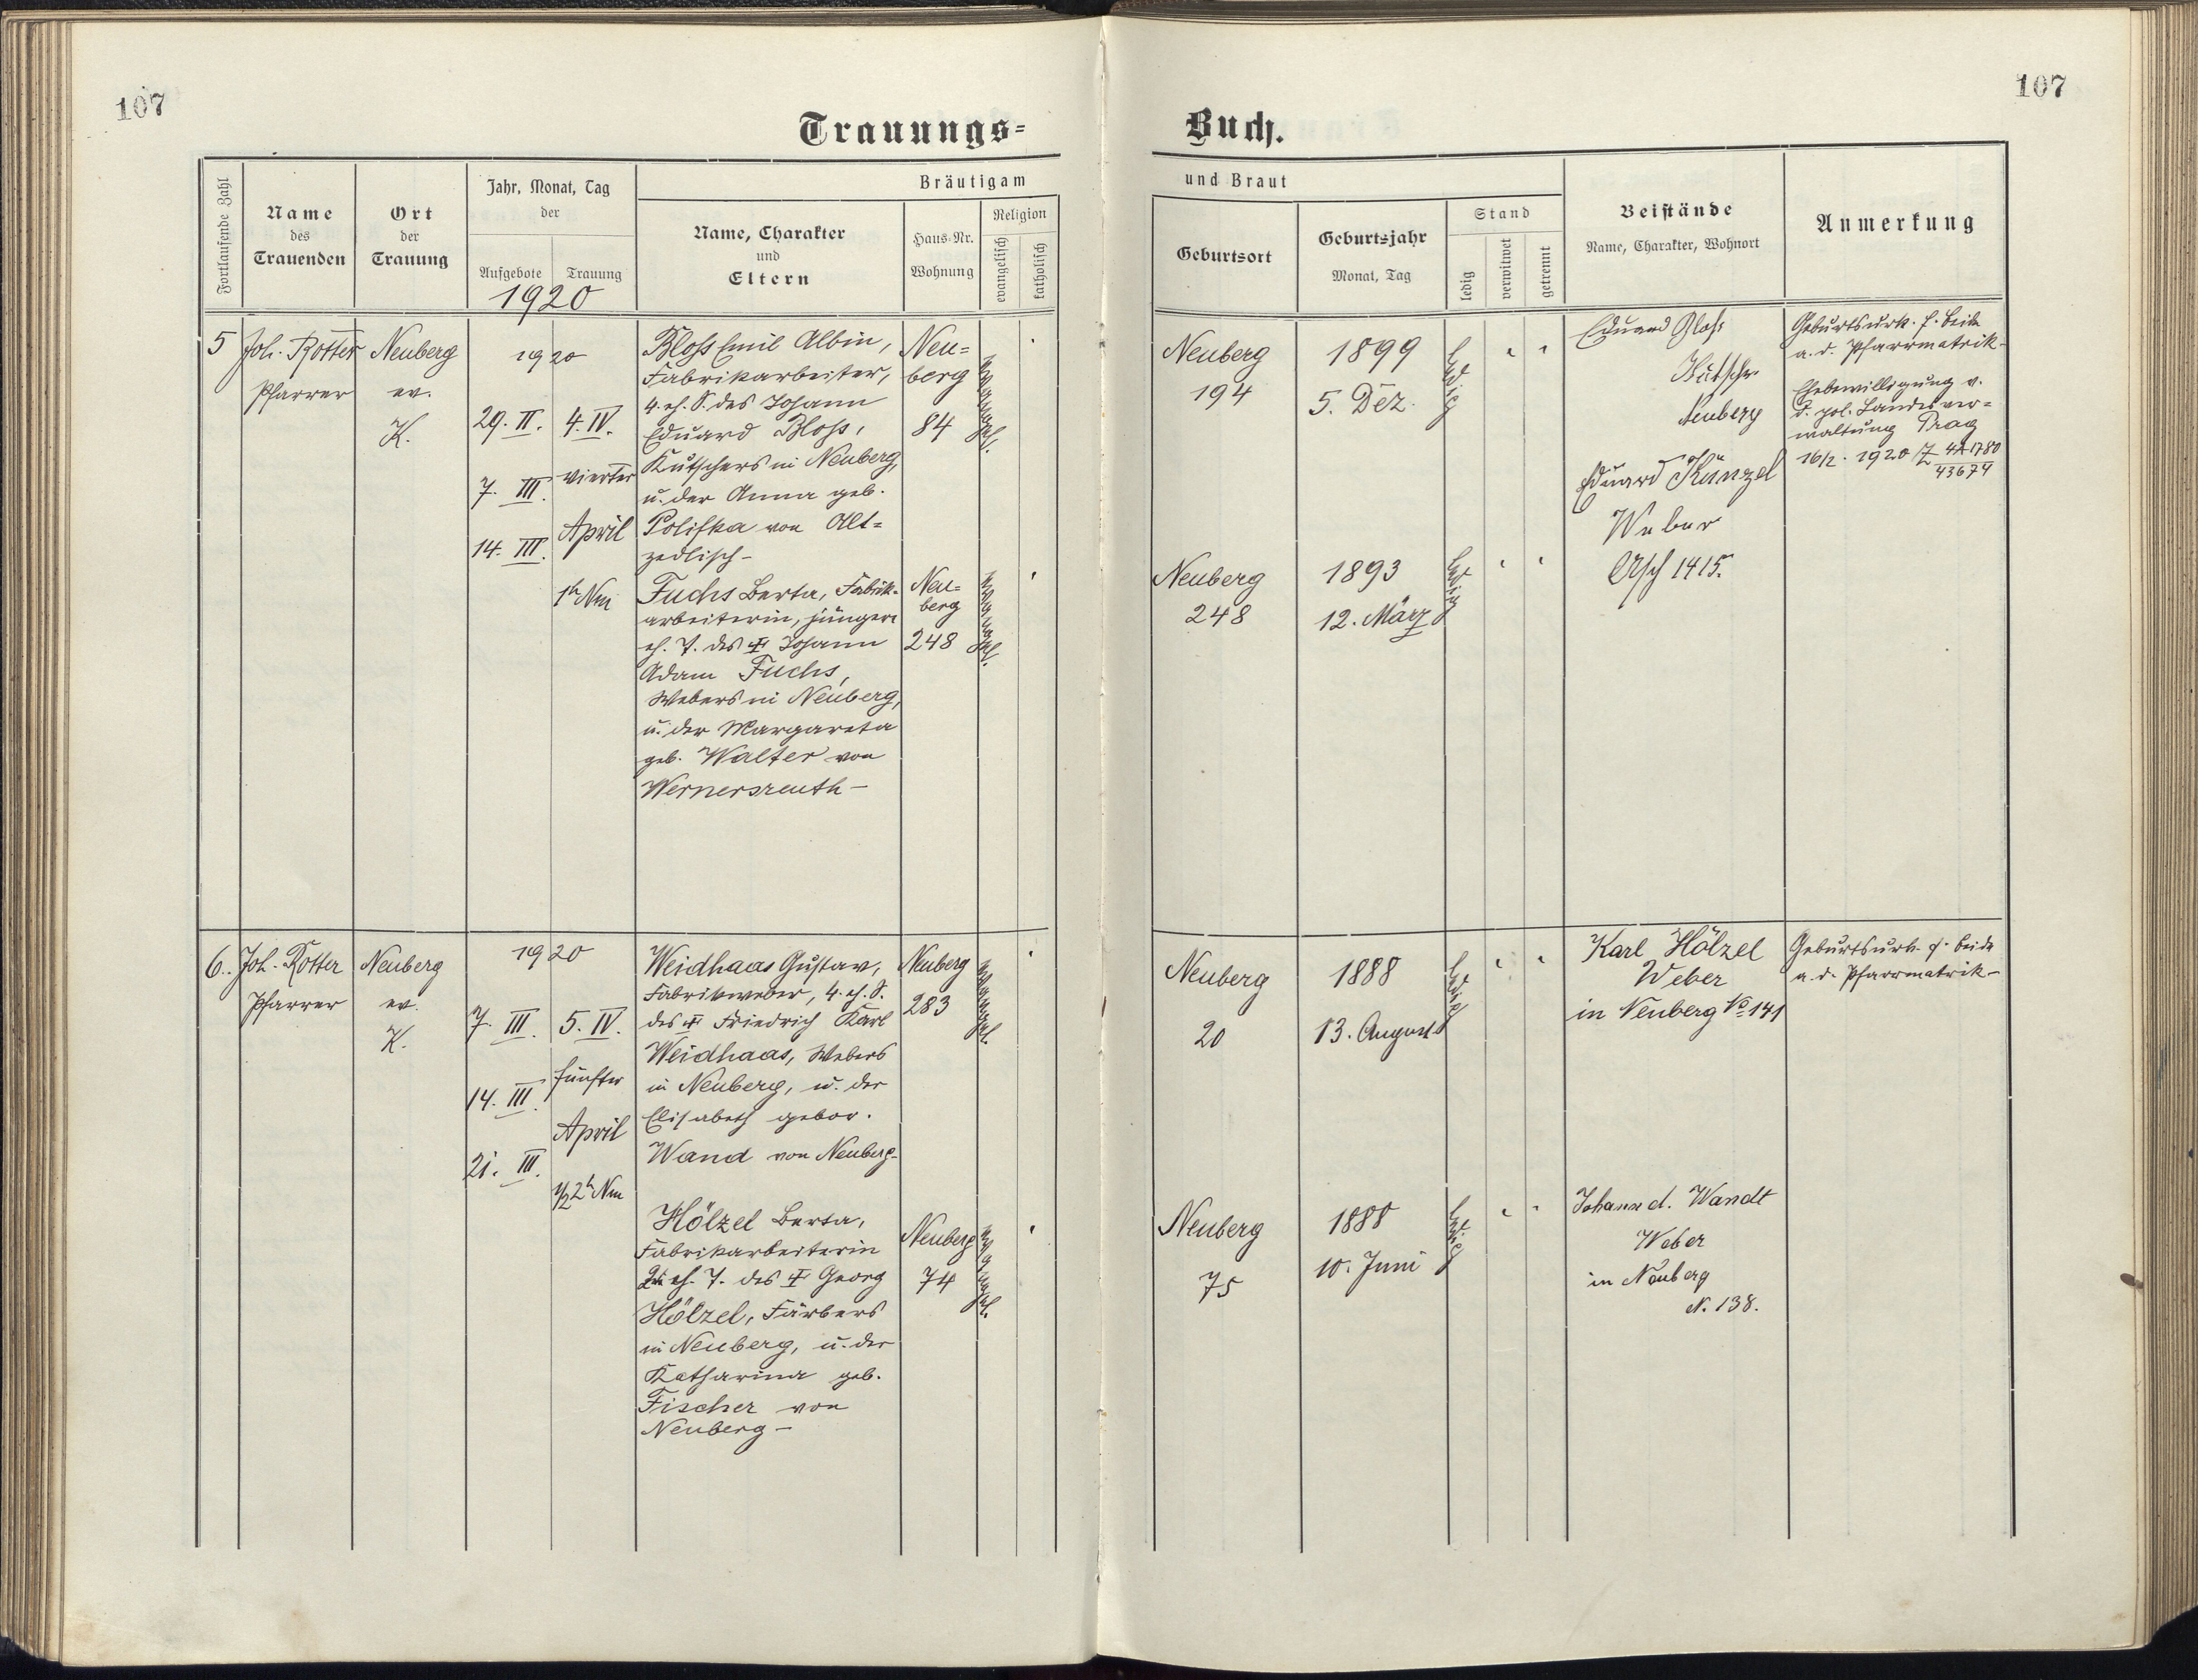 107
107
Trauungs=
Buch.
Fortlaufende Zahl
Name
des
Trauenden
Ort
der
Trauung
Jahr, Monat, Tag
der
Aufgebote
Trauung
1920
Bräutigam
Name, Charakter
und
Eltern
Haus-Nr.
Wohnung
Religion
evangelisch
katholisch
und Braut
Geburtsort
Geburtsjahr
Monat, Tag
Stand
ledig
verwitwet
getrennt
Beistände
Name, Charakter, Wohnort
Anmerkung
5
Joh. Rotter
Pfarrer
Neuberg
ev.
K.
1920
29. II.
7. III.
14. III.
4. IV.
vierter
April
1h Nm
Bloss Emil Albin,
Fabrikarbeiter,
4. eh. S. des Johann
Eduard Bloss,
Kutschers in Neuberg,
u. der Anna geb.
Polifka von Alt=
zedlisch-
Neu=
berg
84
evangel.
Neuberg
194
1899
5. Dez.
ledig
Eduard Bloss
Kutscher
Neuberg
Eduard Künzel
Weber
Asch 1415.
Geburtsurk. f. beide
a. d. Pfarrmatrik-
Ehebewilligung v.
d. pol. Landesver=
waltung Prag
16/2. 1920 Z 4A1780
43674
Fuchs Berta, Fabrik-
arbeiterin, jüngere
eh. T. des † Johann
Adam Fuchs,
Webers in Neuberg,
u. der Margareta
geb. Walter von
Wernersreuth-
Neu=
berg
248
evangel.
Neuberg
248
1893
12. März
ledig
6.
Joh. Rotter
Pfarrer
Neuberg
ev.
K.
1920
7. III.
14. III.
21. III.
5. IV.
fünfter
April
1/2 2h Nm
Weidhaas Gustav,
Fabrikweber, 4. eh. S.
des † Friedrich Karl
Weidhaas, Webers
in Neuberg, u. der
Elisabeth gebor.
Wand von Neuberg-
Neuberg
283
evangel.
Neuberg
20
1888
13. August
ledig
Karl Hölzel
Weber
in Neuberg No 141
Geburtsurk. f. beide
a. d. Pfarrmatrik-
Hölzel Berta,
Fabrikarbeiterin
2te eh. T. des † Georg
Hölzel, Färbers
in Neuberg, u. der
Katharina geb.
Fischer von
Neuberg-
Neuberg
74
evangel.
Neuberg
75
1888
10. Juni
ledig
Johann d. Wandt
Weber
in Neuberg
N. 138.